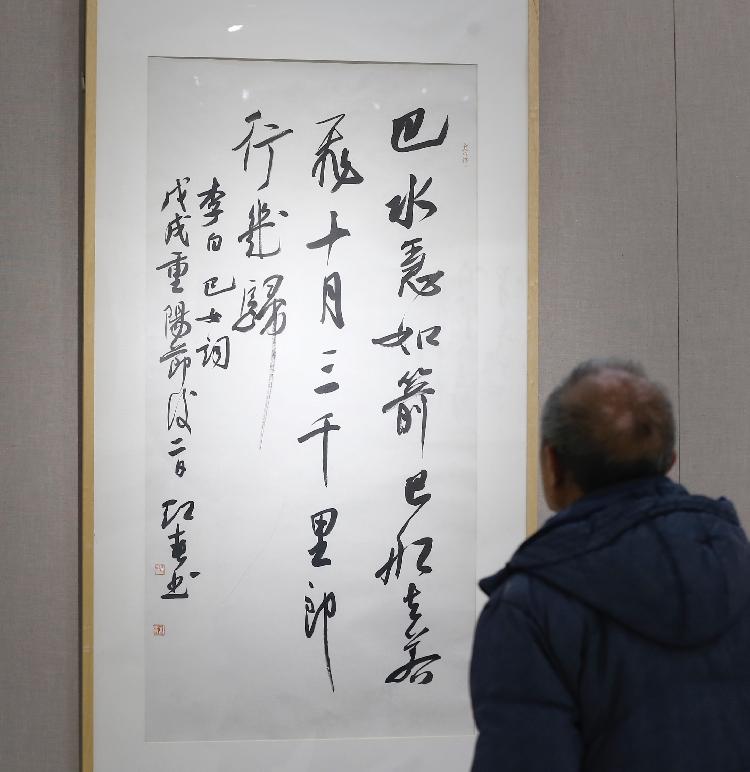 巴水急如箭巴船去若
飛十月三千里郎
行幾歸
李白巴女詞
戊戌重陽節後二日 书